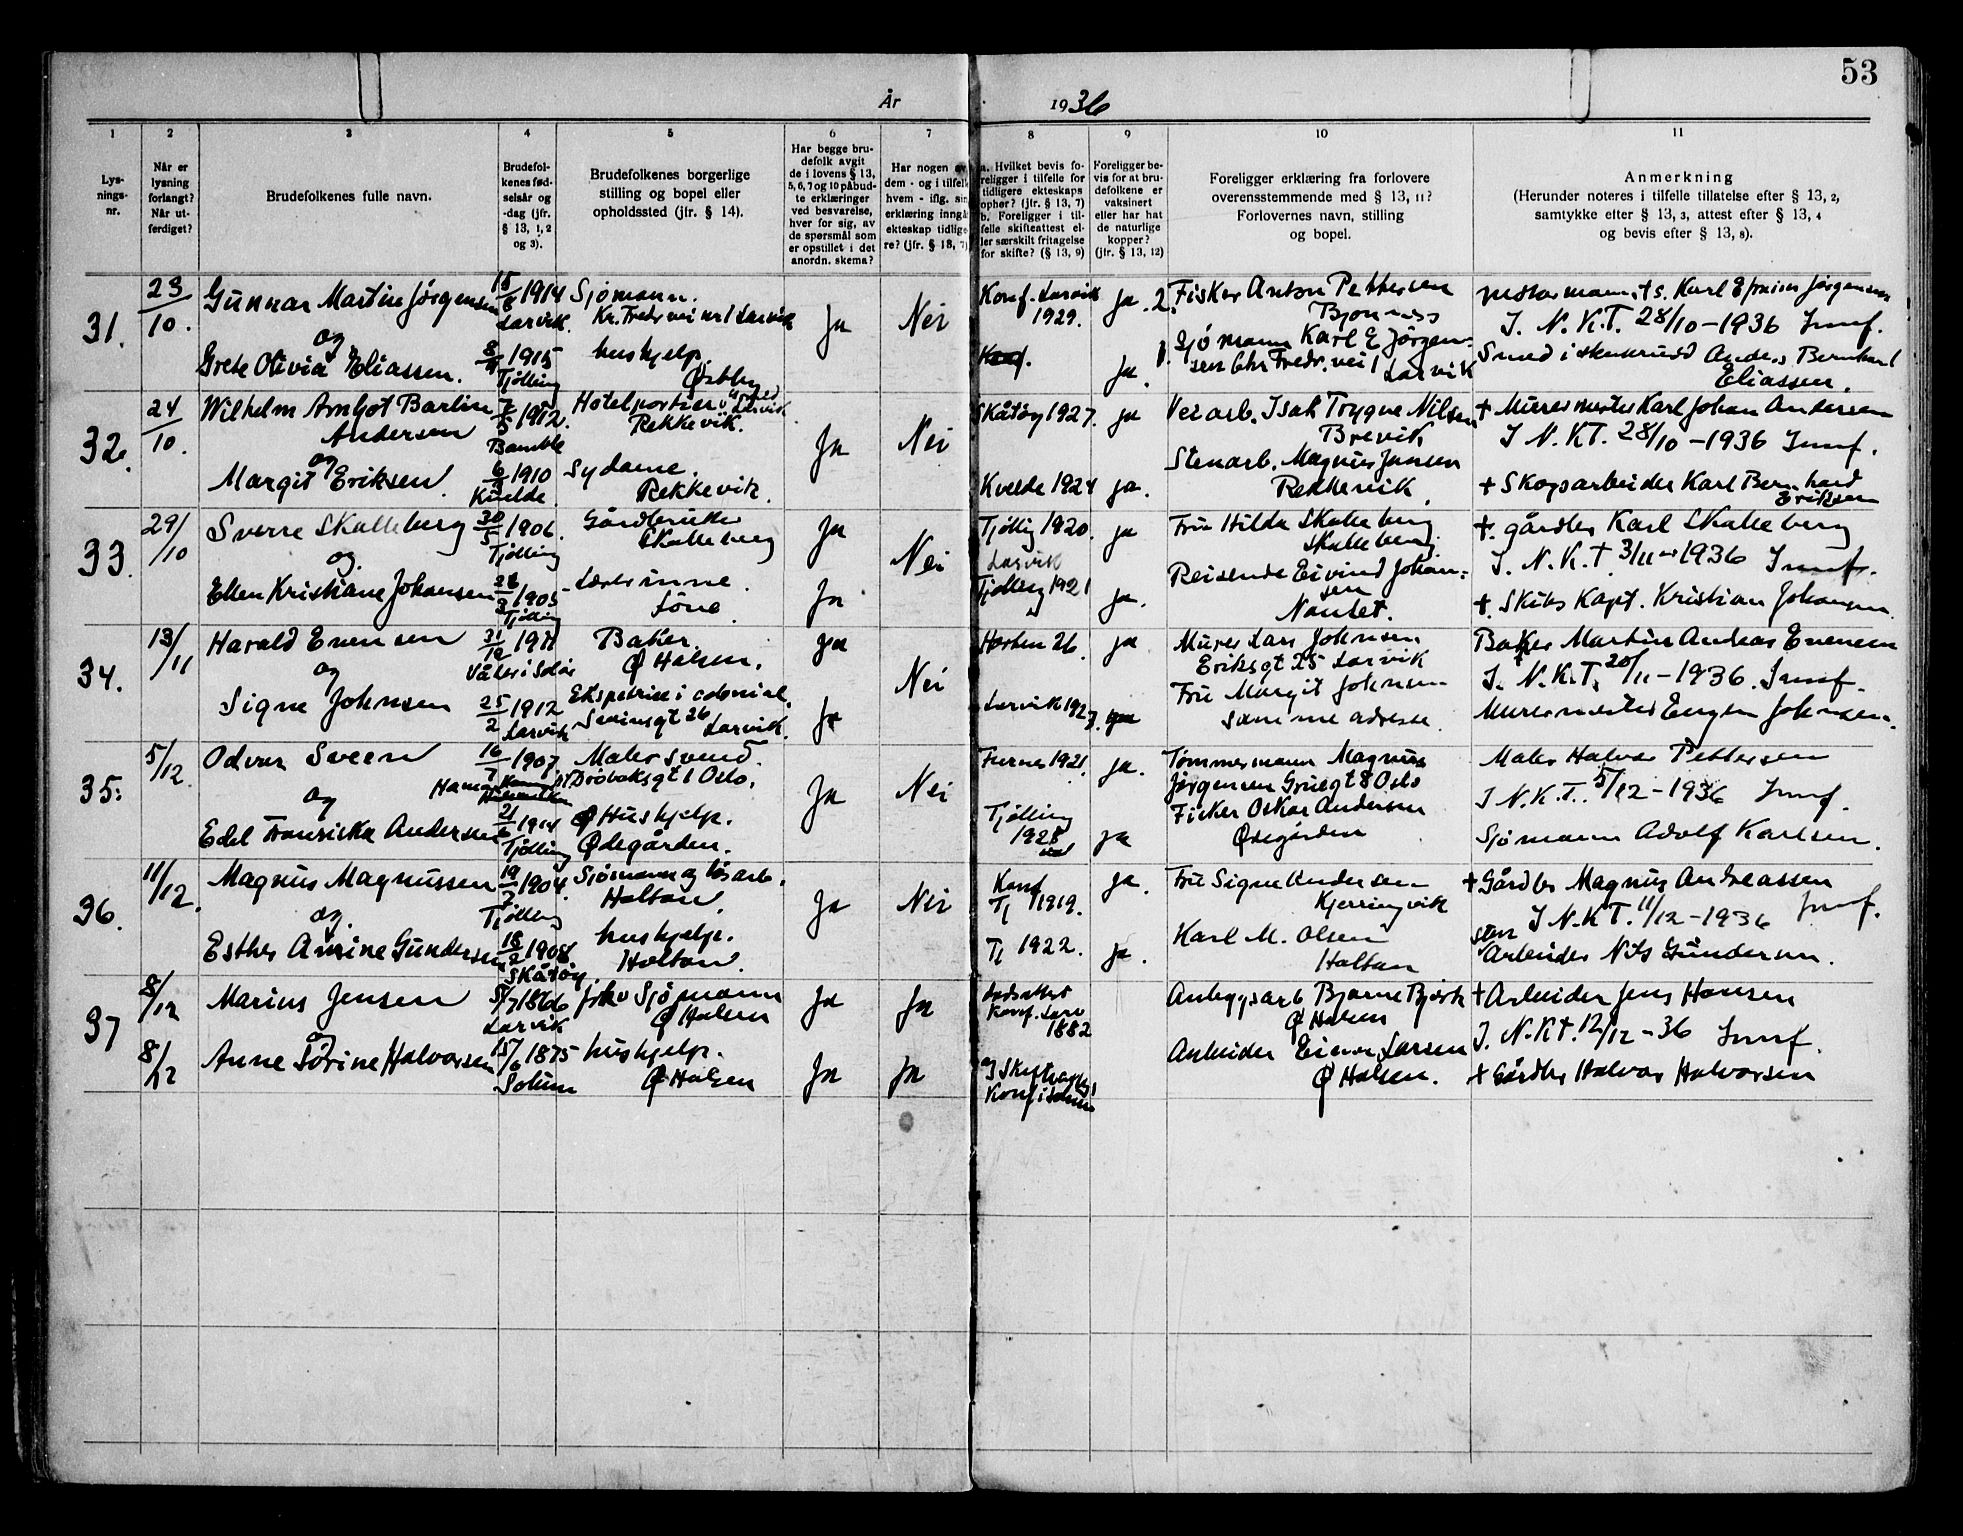 53
År 1936
1 2 3 4 5 6 7 8 9 10 11
Lys-
nings-
nr.
Når er
lysning
forlangt?
Når ut-
ferdiget?
Brudefolkenes fulle navn.
Brudefol-
kenes fød-
selsår og
-dag (jfr.
§ 13, 1, 2
og 3).
Brudefolkenes borgerlige
stilling og bopel eller
opholdssted (jfr. § 14).
Har begge bru-
defolk avgit
de i lovens § 13,
5, 6, 7 og 10 påbud-
te erklæringer
ved besvarelse,
hver for sig, av
de spørsmål som
er opstillet i det
anordn. skema?
Har nogen av
dem - og i tilfelle
hvem - iflg. sin
erklæring inngå
ekteskap tidlige-
re? (jfr. § 13, 7)
a. Hvilket bevis fo-
religger i tilfelle for
tidligere ekteskaps
ophør? (jfr. § 13, 7)
b. Foreligger i til-
felle skifteattest el-
ler særskilt fritagelse
for skifte? (§ 13, 9)
Foreligger be-
vis for at bru-
defolkene er
vaksinert
eller har hat
de naturlige
kopper?
(jfr. § 13, 12)
Foreligger erklæring fra forlovere
overensstemmende med § 13, 11?
Forlovernes navn, stilling
og bopel.
Anmerkning
(Herunder noteres i tilfelle tillatelse efter § 13, 2,
samtykke efter § 13, 3, attest efter § 13, 4
og bevis efter § 13, 8).
31.
23/10.
Gunnar Martin Jørgensen
og
Grete Olivia Eliassen.
15/8 1914
Larvik.
1915
Tjølling
Sjømann.
Kr. Fredr vei nr 1 Larvik
hushjelp.
Østby
Ja
Nei
Konf. Larvik
1929.
Konf.
ja. 2.
ja 1.
Fisker Anton Pettersen
Bjønnes
Sjømann Karl E Jørgen-
sen Chr Fredr. vei 1 Larvik
motormann, ts. Karl Efraim Jørgensen
I. N. K. T. 28/10 - 1936
Smed i Anders Bernhard
Eliassen.
32.
24/10.
Wilhelm Arnljot Barlin
Andersen
og
Margit Eriksen.
7/5 1912.
Bamble
6/3 1910
Kvelde
Hotelportier Larvik
Rekkevik.
Sydame.
Rekkevik.
Ja
Nei
Skåtøy 1927.
Kvelde 1924
ja
ja.
Verarb. Isak Trygve Nilsen
Brevik
Stenarb. Magnus Jansen
Rekkevik.
+ Murermester Karl Johan Andersen
I N. KT. 28/10 - 1936
+ Skogsarbeider Karl Bernhard
Eriksen
33.
29/10
Sverre Skalleberg
og
Ellen Kristiane Johansen
30/5 1906.
Tjølling
28/3 1905
Tjølling
Gårdbruker
Skalleberg
Lærerinne.
Løve
Ja
Ja
Nei
Tjøllig 1920.
Larvik
Tjølling 1921
ja
ja.
Fru Hilda Skalleberg
Skalleberg.
Reisende Eivind Johan-
sen
Nanset.
+. gårdbr Karl Skalleberg
I. N. K. T. 3/11 - 1936
+ Skibs Kapt. Kristian Johansen
34.
13/11
Harald Evensen
og
Signe Johnsen
31/12 1911
Våler i Solør
25/2 1912
Larvik
Baker.
Ø Halsen.
Ekspetrise i colonial.
26 Larvik.
ja
Ja
Nei
Horten 26.
Larvik 1927.
ja
ja
Murer Lars Johnsen
Eriksgt 25 Larvik
Fru Margit Johnsen
samme adresse
Baker Martin Andreas Evensen
I. N. K. T. 20/11 - 1936.
Murermester Eugen Johnsen.
35.
5/12.
Odvar Sveen
og
Edel Franziska Andersen
16/7 1907
Hamar
21/6 1914
Tjølling
Malersvend.
Drøbaksgt 1 Oslo.
Hushjelp.
Ødegården.
Ja
Nei
Furnes 1921.
Tjølling
1928
ja.
ja
Tømmermann Magnus
Jørgensen Gruegt 8 Oslo
Fisker Oskar Andersen
Ødegården
Maler Halvar Pettersen
I N. K. T. 5/12 - 1936
Sjømann Adolf Karlsen.
36.
11/12.
Magnus Magnussen
og
Esther Amine Gundersen
19/7 1904.
Tjølling
18/2 1908
Skåtøy
Sjømann og løsarb.
Holtan.
hushjelp.
Holtan.
Ja
Nei
Konf
Tj 1919.
Tj 1922.
ja.
ja.
Fru Signe Andersen
Kjerringvik
Karl M. Olsen
Holtan
+ Gårdbr Magnus Andreassen
I N. K T. 11/12 - 1936
Arbeider Nils Gundersen.
37
8/12
8/12
Marius Jensen
og
Anne Tørine Halvorsen
5/7 1866
Larvik
15/6 1875
Solum
fhv Sjømann
Ø Halsen
hushjelp.
Ø Halsen
Ja
Ja
Ja
Ja
Konf. Larv
1882
Anleggsarb Bjarne Bjørk
Ø Halsen
Arbeider Einar Larsen
Ø Halsen.
+ Arbeider Jens Hansen
I. N. K t. 12/12 - 36
+ Gårdbr Halvor Halvorsen